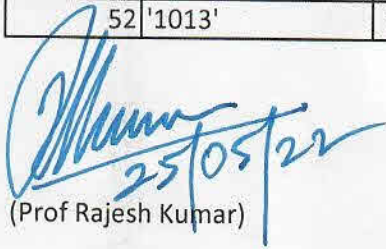 52 '1013'
25/05/22
(Prof Rajesh Kumar)